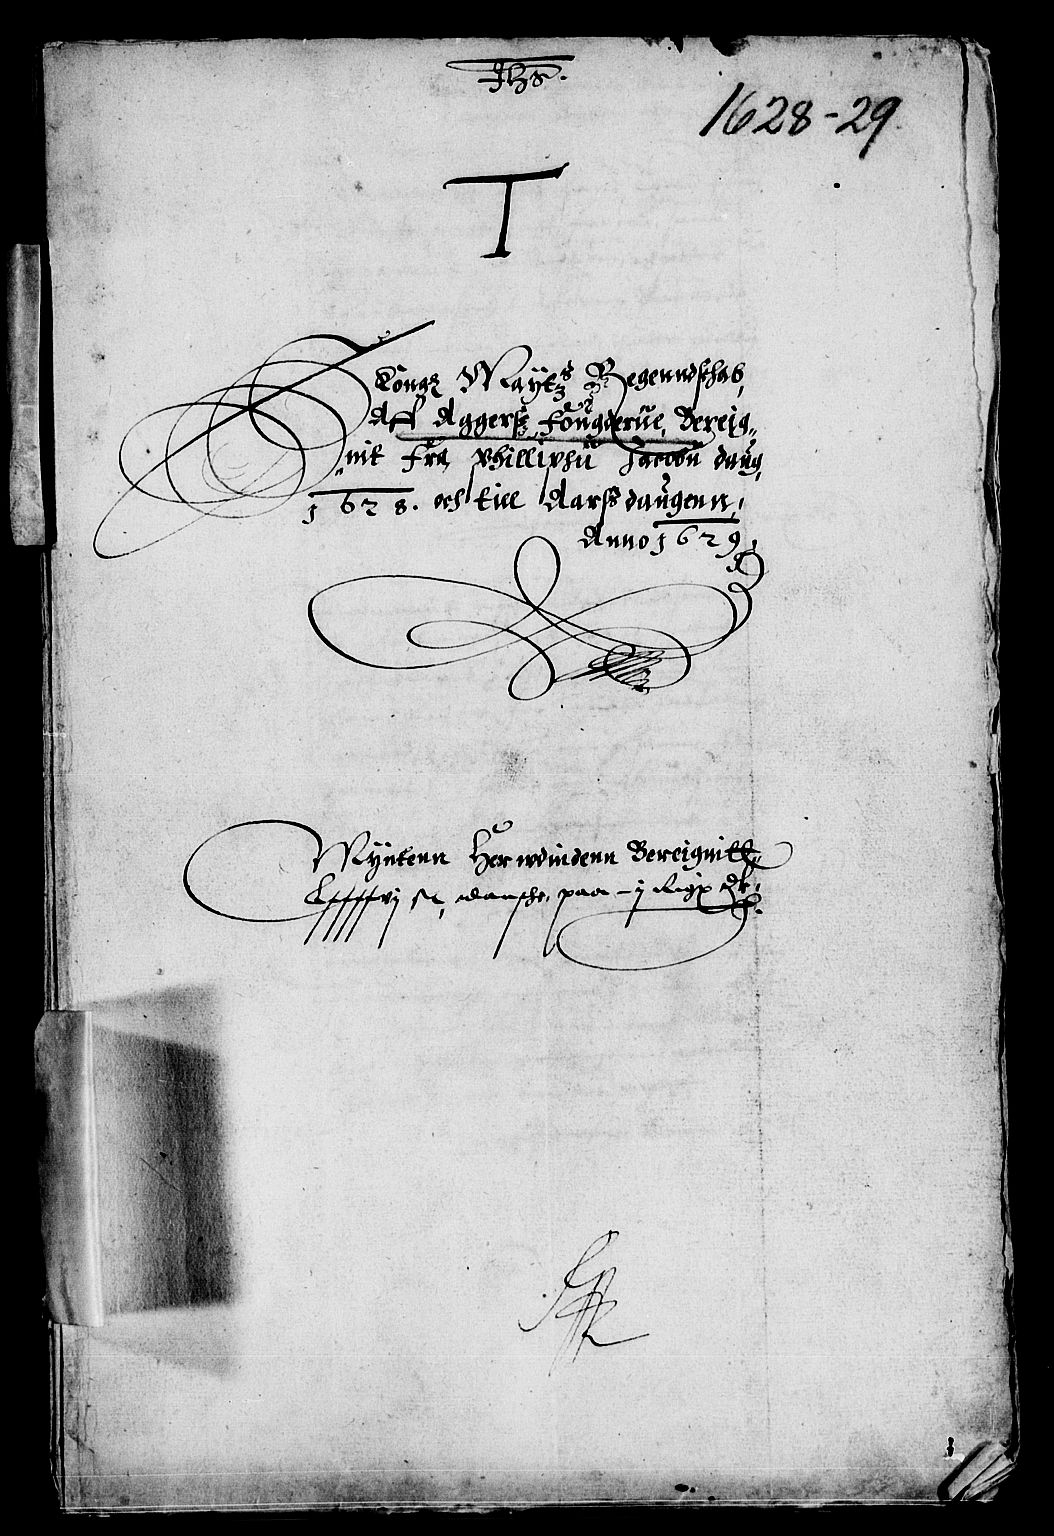 Jhs.
1628-29.
T
Könge Maytz Regenndschab,
Aff Aggersz Fougderüe, Bereig„
nit Fra Phillipsü Jacobü daüg,
1628. och till Aarsz daügenn,
Anno 1629
Myntenn Her wdindenn Bereignitt
paa
1